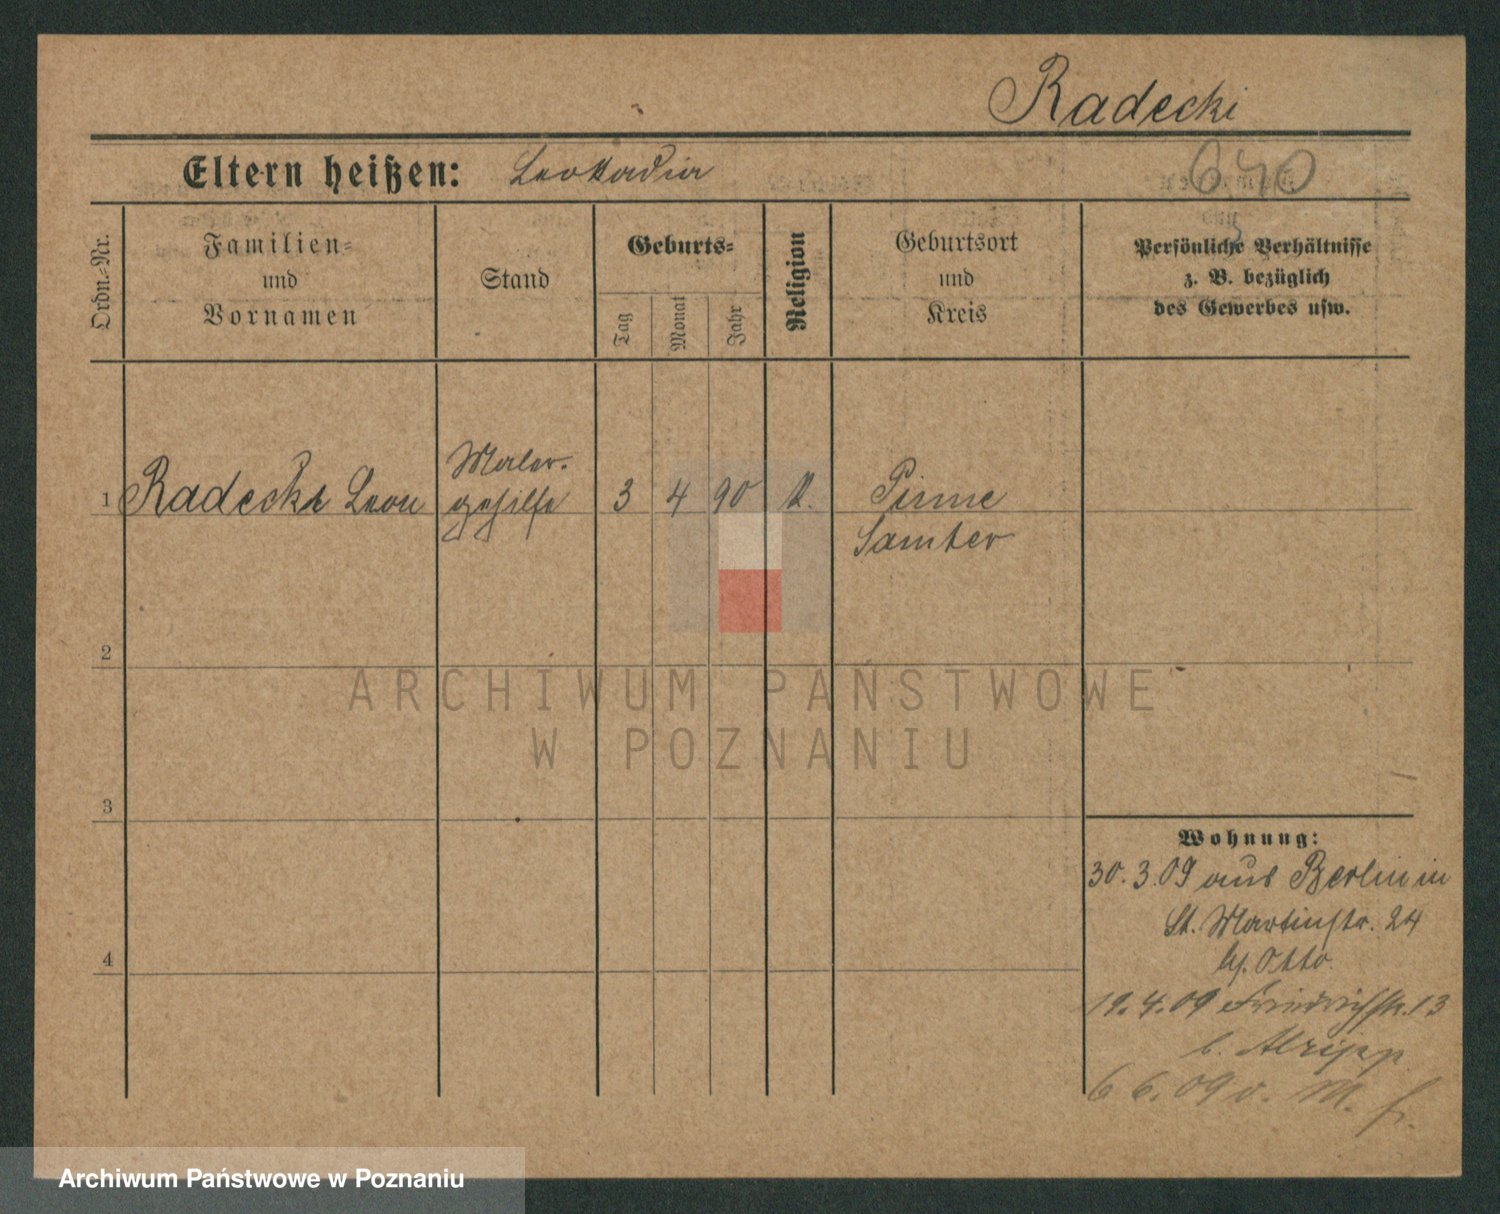 Radecki
Eltern heißen: Leokadia
640
Ordn.-Nr.
Familien-
und
Vornamen
Stand
Geburts-
Tag
Monat
Jahr
Religion
Geburtsort
und
Kreis
Persönliche Verhältnisse
z. B. bezüglich
des Gewerbes usw.
1 Radecki Leon
Maler-
gehilfe
3 4 90 k.
Pinne
Samter
2
3
4
Wohnung:
30.3.09 aus Berlin in
St. Martinstr. 24
bei Otto
19.4.09 Friedrichstr. 13
b.
6 6.09 v. M.
ARCHIWUM PAŃSTWOWE
W POZNANIU
Archiwum Państwowe w Poznaniu